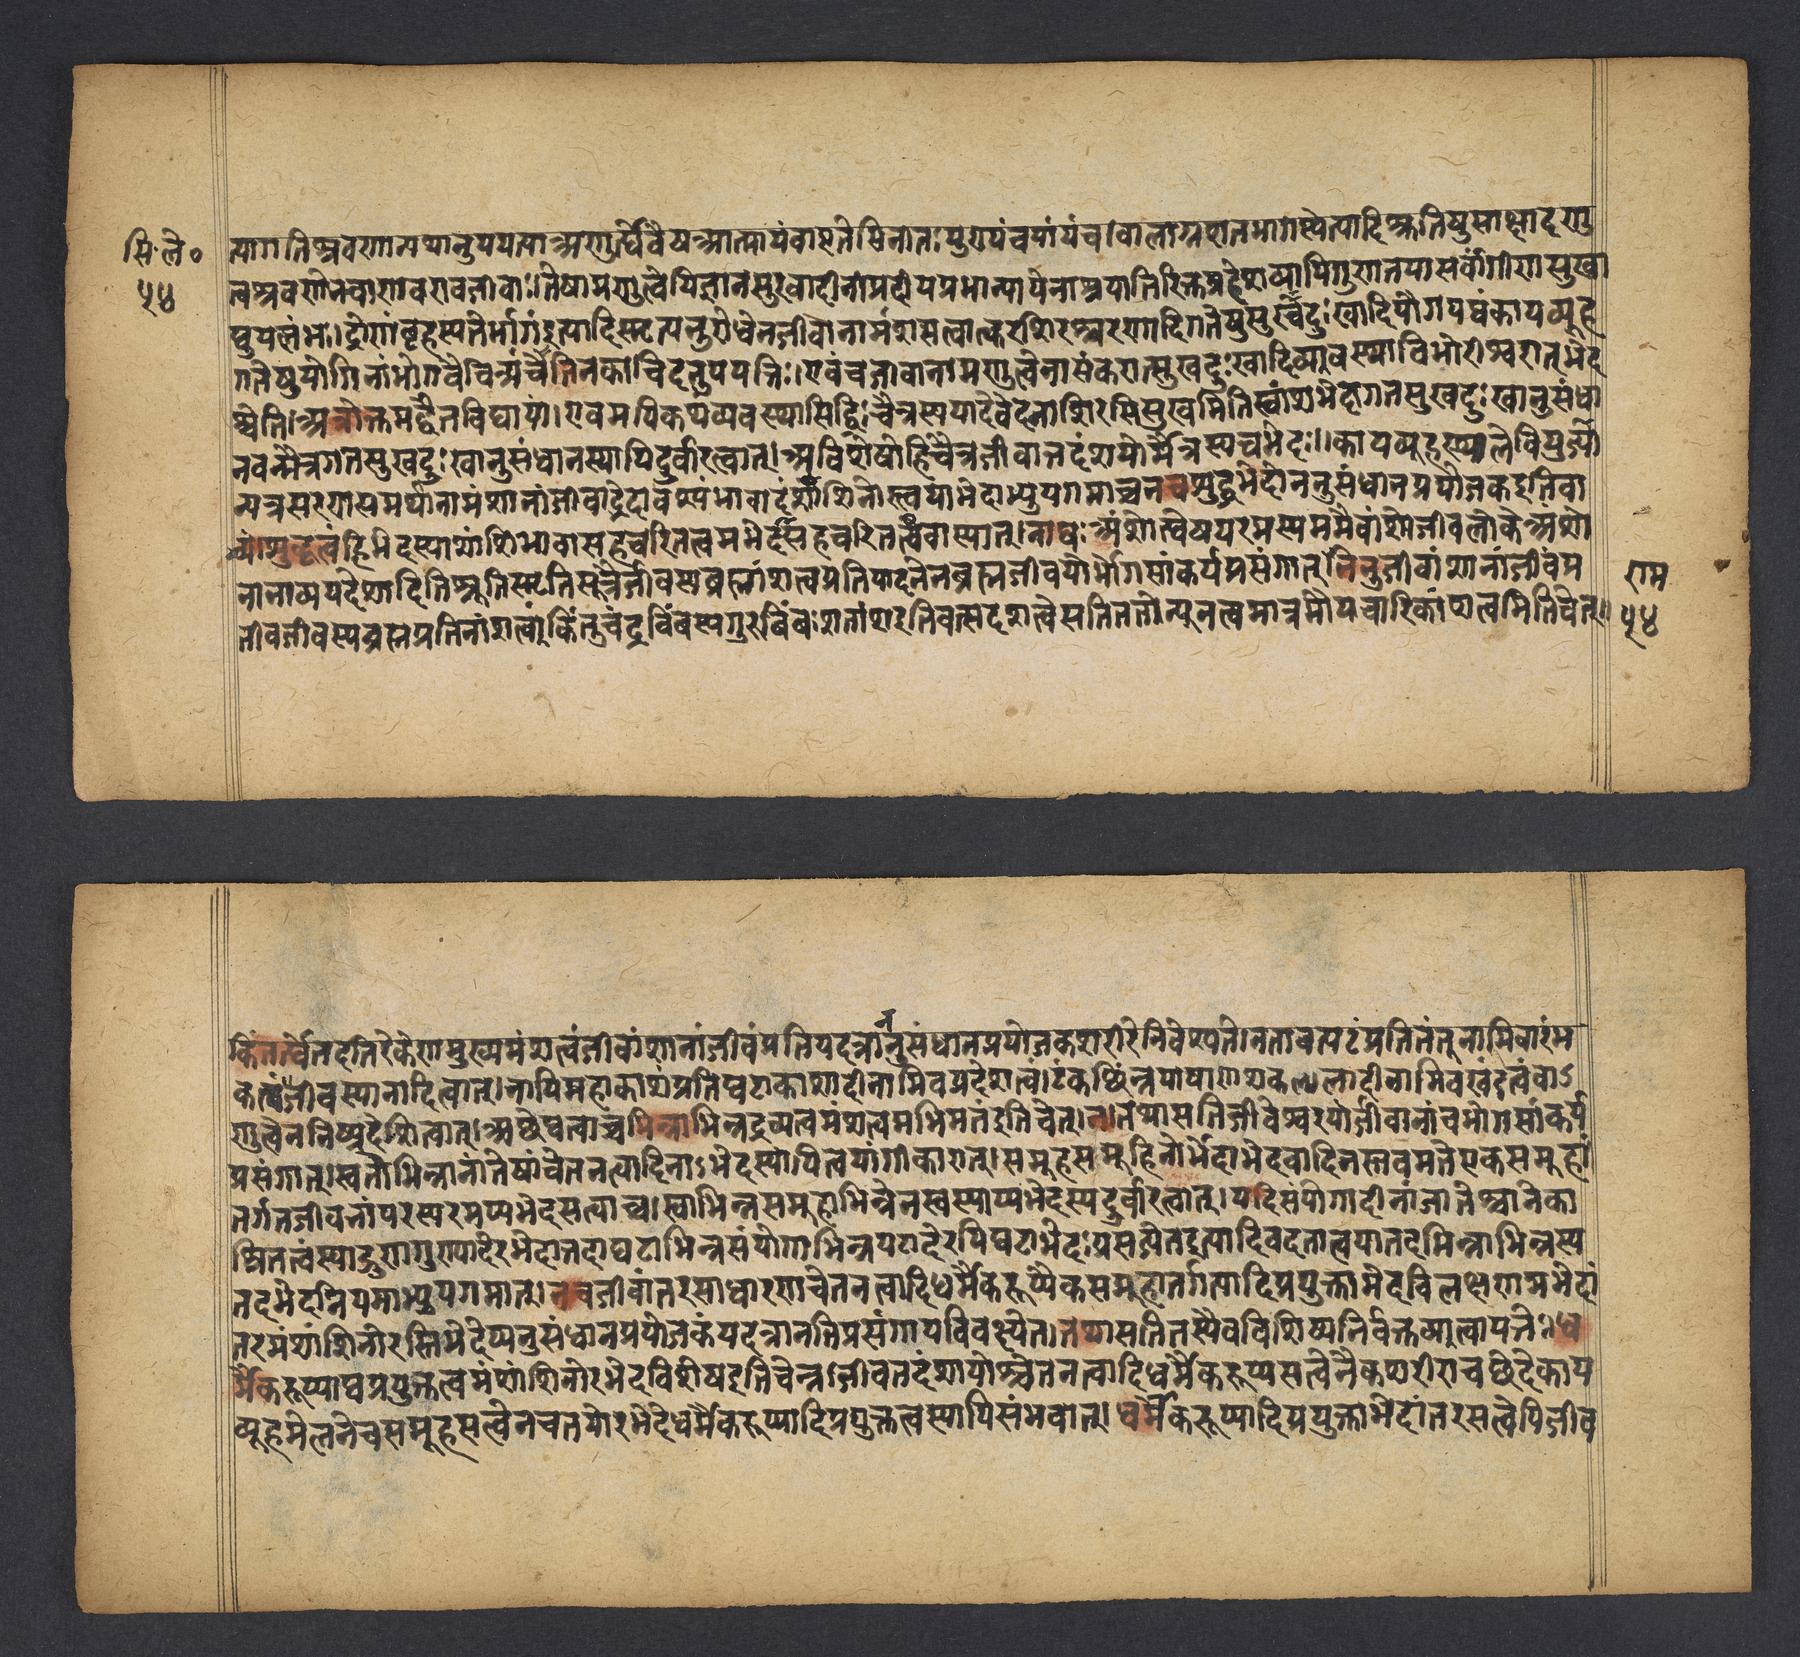 सि॰ ले॰
५४
त्यागतिश्रवणान्यथानुपपत्त्या अणुर्ह्येवैष आत्मायं वा एते सिनीतः पुण्यं च पापं च । वालाग्रशतभागस्येत्यादिश्रुतिषु साक्षादणु
त्वश्रवणेन चाणव एव जीवाः । तेषामणुत्वेपि ज्ञानसुखादीनां प्रदीपप्रभान्यायेनाश्रयातिरिक्तप्रदेशव्यापिगुणतया सर्वांगीणसुखा
द्युपलंभः । द्रोणं बृहस्पतेर्भागं इत्यादिस्मृत्यनुरोधेन जीवानामंशसत्वात्करशिरश्चरणादिगतेषु सुखदुःखादियौगपद्यं कायव्यूह
गतेषु योगिनां भोगवैचित्र्यं चेति न काचिदनुपपत्तिः । एवं च जीवानामणुत्वेनासंकरात्सुखदुःखादिव्यवस्था विभोरीश्वरात् भेद
श्चेति । अत्रोक्तमद्वैतविद्यायां । एवमपि कथं व्यवस्थासिद्धिः चैत्रस्य पादे वेदना शिरसि सुखमिति स्वांशभेदगतसुखदुःखानुसंधा
नवन्मैत्रगतसुखदुःखानुसंधानस्यापि दुर्वारत्वात् । अविशेषो हि चैत्रजीवात्तदंशयोर्मैत्रस्य च भेदः ।। कायव्यूहस्थले वियुज्या
न्यत्र सरणसमर्थानामंशानां जीवाद्भेदावश्यंभावादंशांशिनोस्त्वया भेदाभ्युपगमाच्च न च शुद्धभेदोननुसंधानप्रयोजक इति वा
च्यं । शुद्धत्वं हि भेदस्यांशांशिभावासहचरितत्वमभेदासहचरितत्वं वा स्यात् । नाद्यः अंशो ह्येष परमस्य ममैवांशो जीवलोके अंशो
नानाव्यपदेशादिति श्रुतिस्मृतिसूत्रैर्जीवस्य ब्रह्मांशत्वप्रतिपादनेन ब्रह्मजीवयोर्भोगसांकर्यप्रसंगात् । ननु जीवांशानां जीवं प्र
तीव जीवस्य ब्रह्म प्रति नांशत्वं किंतु चंद्रबिंबस्य गुरुबिंबः शतांश इतिवत्सदृशत्वे सति ततो न्यूनत्वमात्रमौपचारिकांशत्वमिति चेत् ।
राम
५४
किं तर्ह्येतदतिरेकेण मुख्यमंशत्वं जीवांशानां जीवं प्रति यदत्राननुसंधानप्रयोजकशरीरे निवेश्यते । न तावत्पटं प्रति तंतूनामिवारंभ
कत्वं जीवस्यानादित्वात् । नापि महाकाशं प्रति घटाकाशादीनामिव प्रदेशत्वं । टंकच्छिन्नपाषाणशकलादीनामिव खंडत्वं वाऽ
णुत्वेन निष्प्रदेशत्वात् । अच्छेद्यत्वाच्च भिन्नाभिन्नद्रव्यत्वमंशत्वमभिमतं इति चेत् । न । तथा सति जीवेश्वरयोर्जीवानां च भोगसांकर्य
प्रसंगात् । स्वतो भिन्नानां तेषां चेतनत्वादिनाऽभेदस्यापि त्वयांगीकारात् । समूहसमूहिनोर्भेदाभेदवादिनस्तव मते एकसमूहां
तर्गतजीवनां परस्परमप्यभेदसत्वाच्च । स्वाभिन्नसमूहाभिन्नेन स्वस्याप्यभेदस्य दुर्वारत्वात् । यदि संयोगादीनां जातेश्चानेका
श्रितत्वं स्याद्गुणगुण्यादेरभेदात्तदा घटाभिन्नसंयोगाभिन्नपटादेरपि घटाभेदः प्रसज्येत इत्यादि वदता त्वया तदभिन्नाभिन्नस्य
तदभेदनियमाभ्युपगमात् । न च जीवांतरसाधारणचेतनत्वादिधर्मैकरूप्यैकसमूहांतर्गत्यादिप्रयुक्ताभेदविलक्षणमभेदां
तरमंशांशिनोरस्ति भेदेप्यनुसंधानप्रयोजकं यदत्रानतिप्रसंगाय विवक्ष्येत । तथा सति तस्यैव विशिष्य निर्वक्तव्यत्वापत्तेः । ध
र्मैकरूप्याद्यप्रयुक्तत्वमंशांशिनोरभेदविशेष इति चेन्न । जीवतदंशयोश्चेतनत्वादिधर्मैकरूप्यसत्वेनैकशरीरावच्छेदे काय
व्यूहमेलने च समूहसत्वेन च तयोरभेदे धर्मैकरूप्यादिप्रयुक्तत्वस्यापि संभवात् । धर्मैकरूप्यादिप्रयुक्ताभेदांतरसत्वेपि जीव